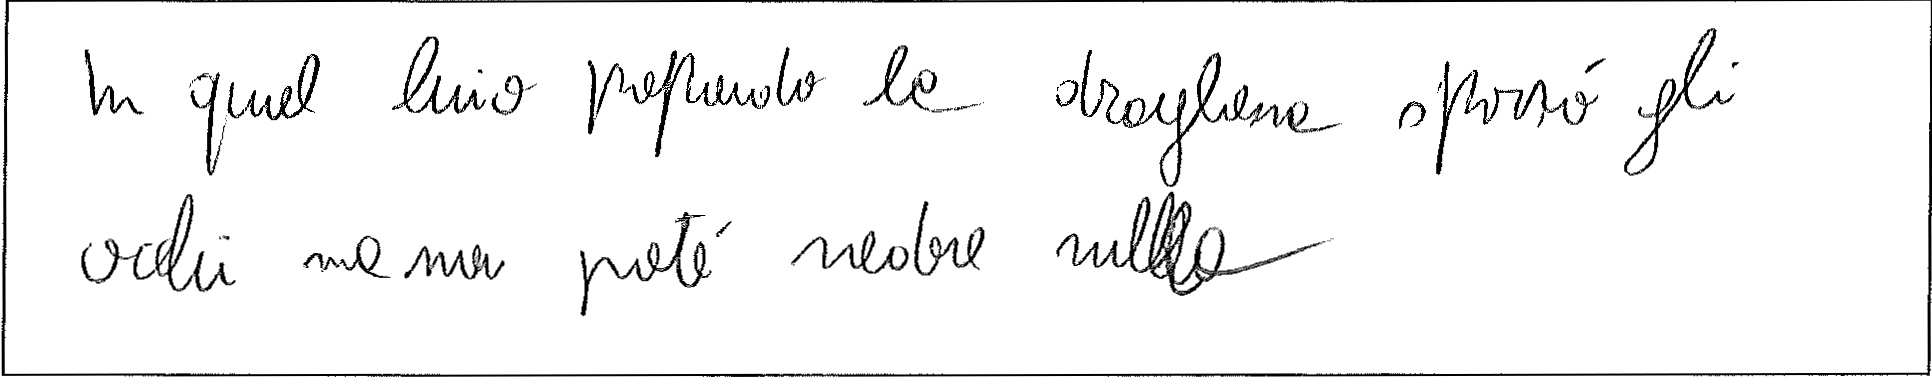 In quel buio profondo la dragHessa sforzó gli
occhi ma non poté vedere nulla